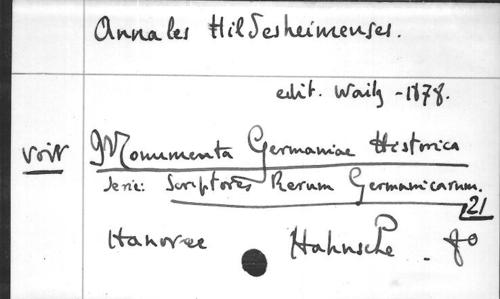 Annales Hildesheimenses.
edit. Waitz - 1878.
voir Monumenta Germaniae Historica
Serie: Scriptores Rerum Germanicarum.
21
Hanovre Hahnsche . 8º